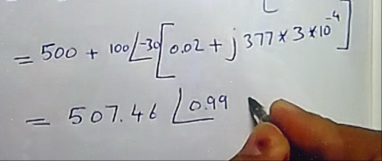 = 500 + 100∠-30[0.02 + j 377 * 3 * 10⁻⁴]
= 507.46 ∠0.99